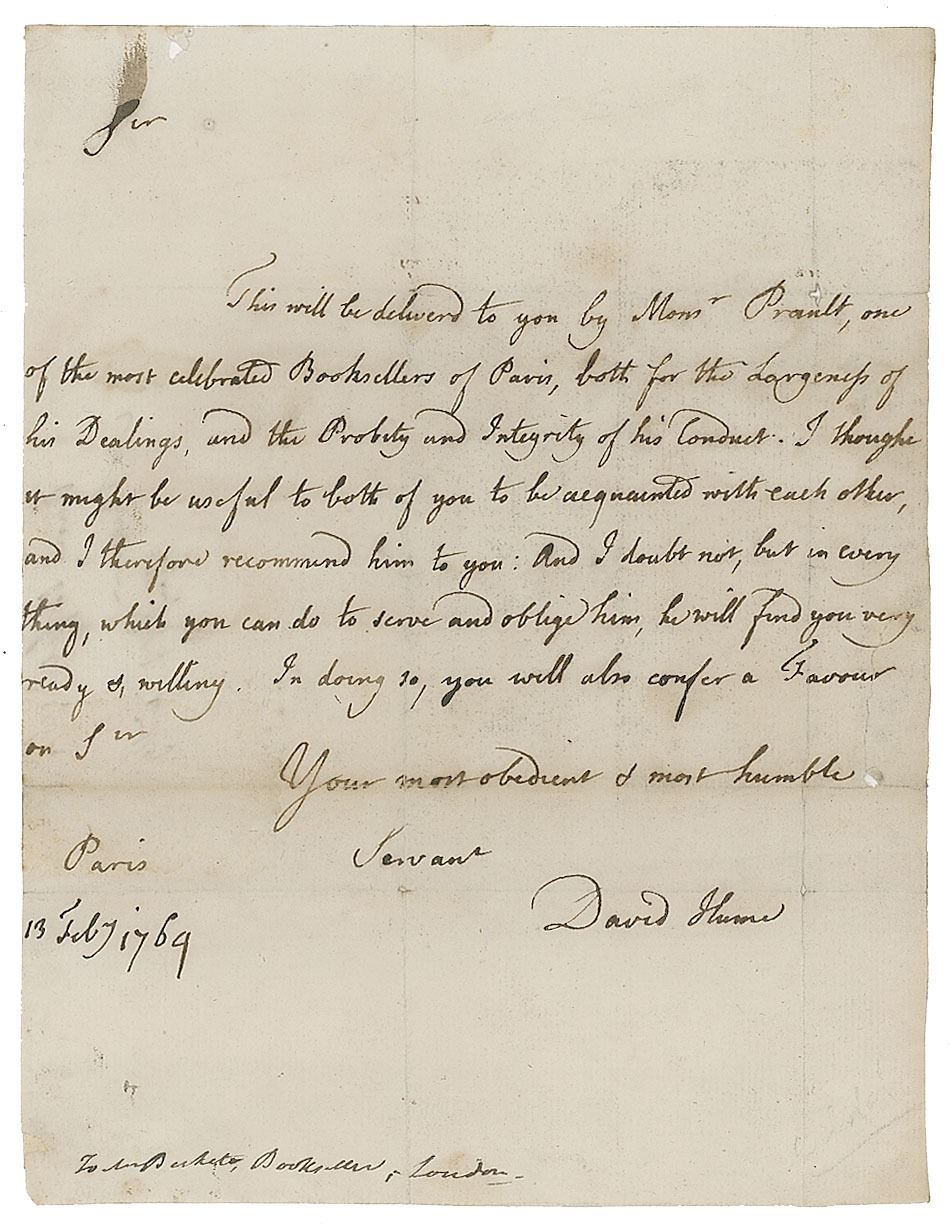 Sir
This will be deliverd to you by Monsr Prault, one
of the most celebrated Booksellers of Paris, both for the Largeness of
his Dealings, and the Probity and Integrity of his Conduct. I thought
it might be useful to both of you to be acquainted with each other,
and I therefore recommend him to you: And I doubt not, but in every
thing, which you can do to serve and oblige him, he will find you very
ready & willing. In doing so, you will also confer a Favour
on Sir
Your most obedient & most humble
Servant
Paris
David Hume
13 Feby 1769
To Mr Beckett, Bookseller, London